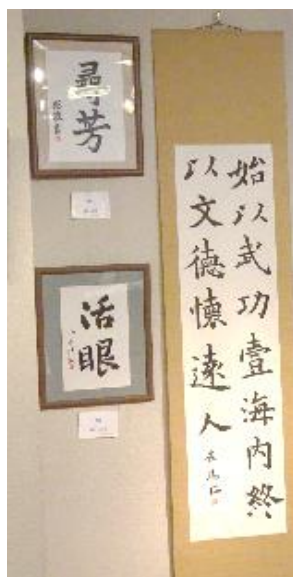 尋芳
活眼
始以武功壹海内終
以文德懷遠人